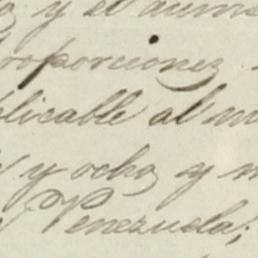 y el aume
proporciones
plicable al m
y ocho y m
Venezuela;